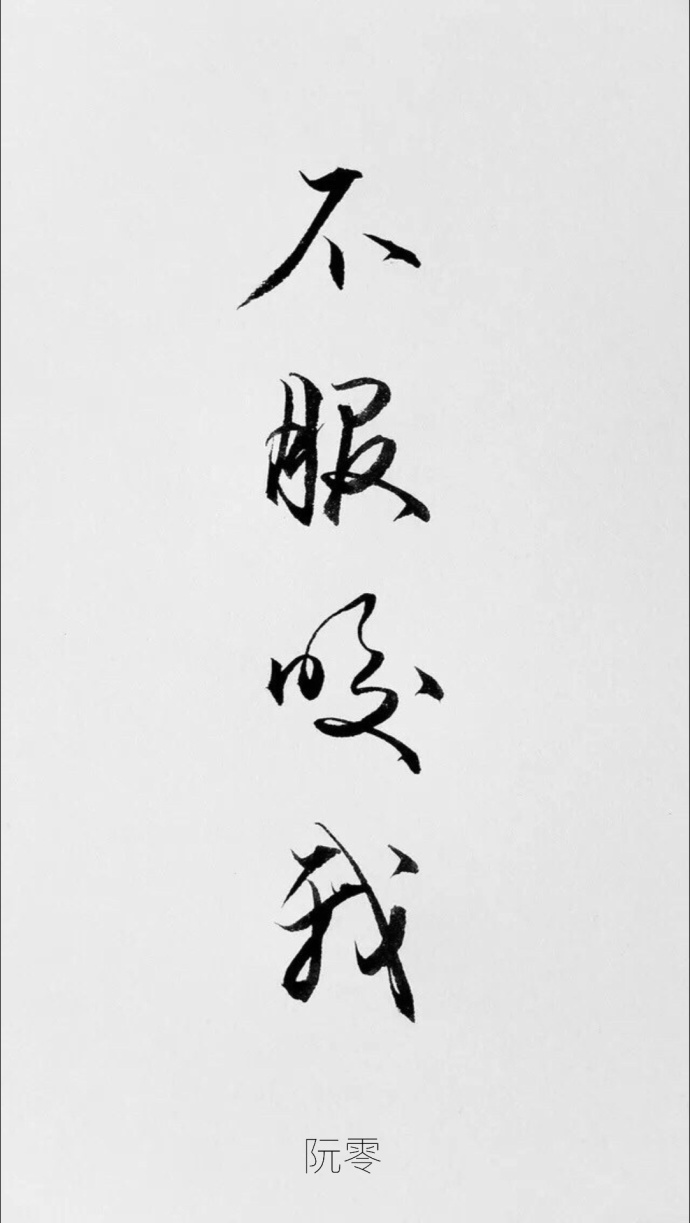 不服咬我
阮零